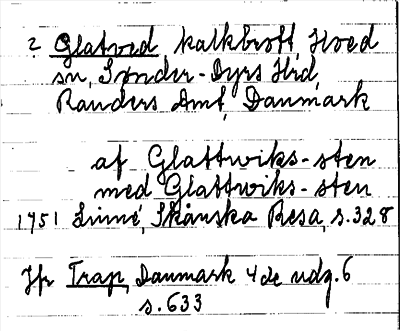 ? Glatved kalkbrott, Hoed
sn, Sønder-Dyrs Hrd,
Randers Amt, Danmark
af Glattwiks-sten
med Glattwiks-sten
1751 Linné, Skånska Resa, s. 328
Jfr Trap, Danmark 4de udg. 6
s. 633